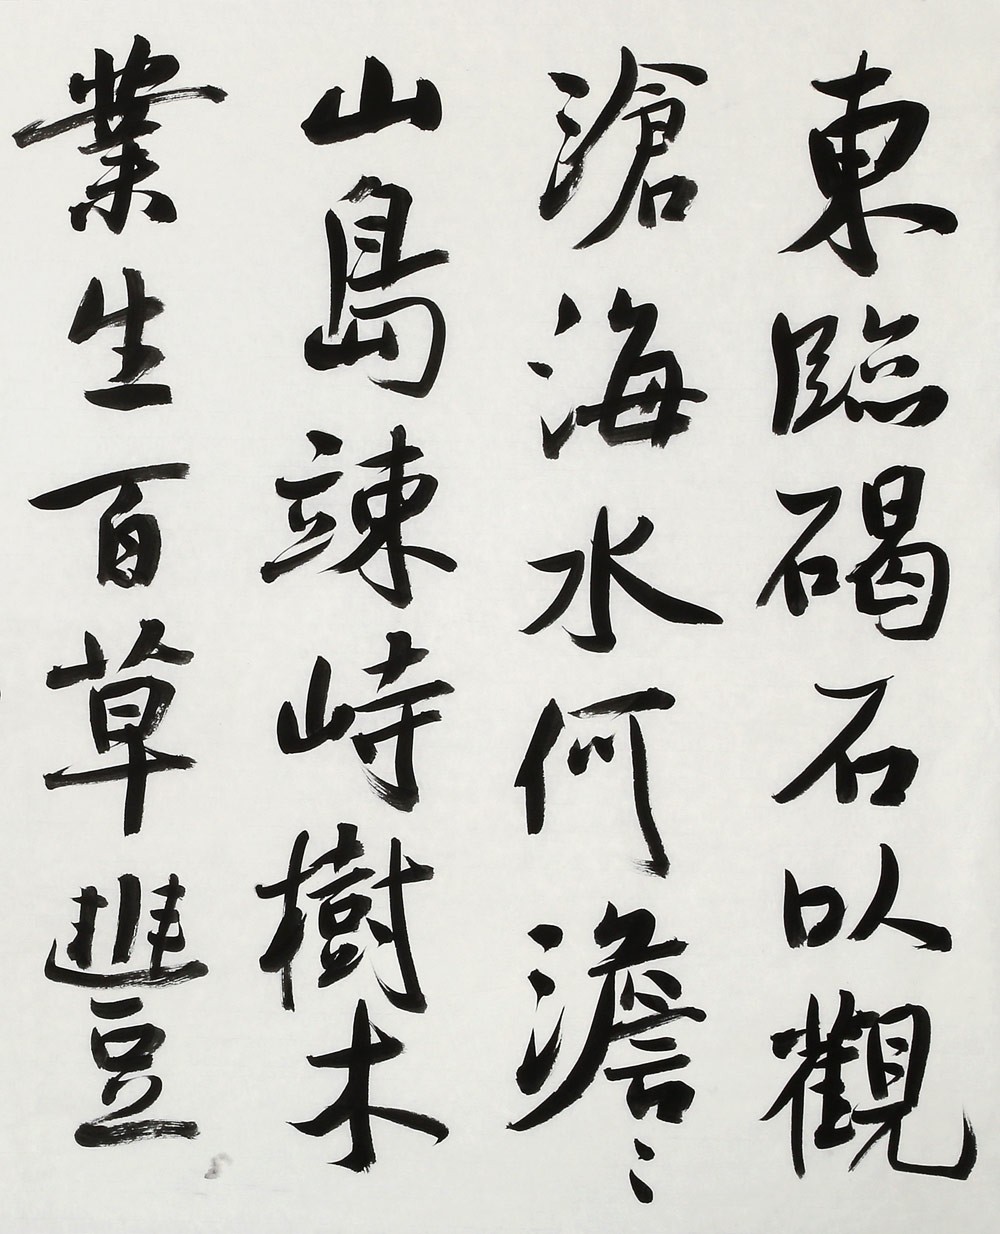 東臨碣石以觀
滄海水何澹〻
山島竦峙樹木
業生百草豐